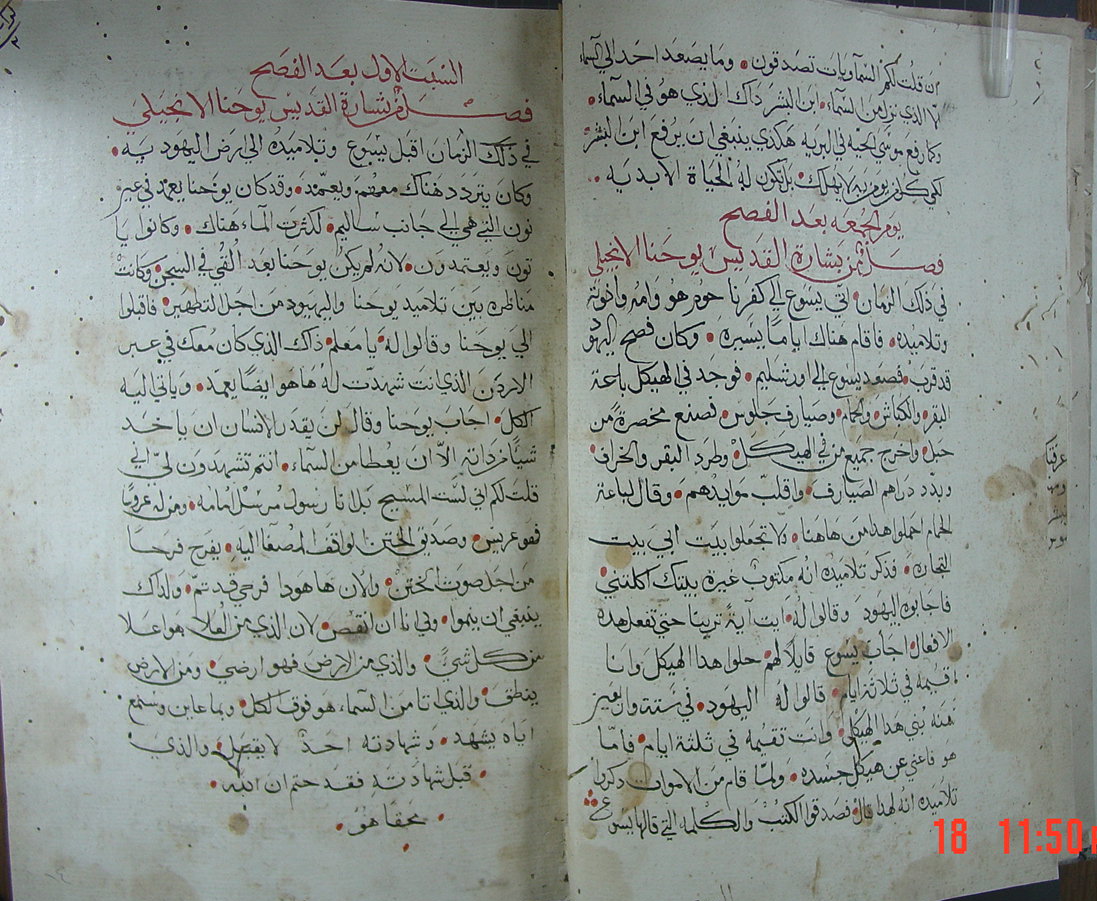 ان قلت لكم السماويات تصدقون • وما يصعد احد الي السماء
الا الذي نزل من السماء • ابن البشر ذاك الذي هو في السماء •
وكما رفع موسي الحيه في البريه هكذي ينبغي ان يرفع ابن البشر •
لكي كل من يومن به لا يهلك • بل تكون له الحياة الابديه •
يوم الجمعه بعد الفصح
فصل من بشارة القديس يوحنا الانجيلي
في ذلك الزمان • اتي يسوع الي كفرناحوم هو وامه واخوته
وتلاميده • فاقام هناك اياما يسيره • وكان فصح اليهود
قد قرب • فصعد يسوع الي اورشليم • فوجد في الهيكل باعة
البقر • والكباش • والحمام • وصيارف جلوس • فصنع مخصرة من
حبل • واخرج جميع من في الهيكل • وطرد البقر والخراف •
وبدد دراهم الصيارف • واقلب موايدهم • وقال لباعة
الحمام احملوا هدا من هاهنا • ولا تجعلوا بيت ابي بيت
التجاره • فذكر تلاميده انه مكتوب غيرة بيتك اكلتني
فاجابوه اليهود وقالوا له • ايت آية ترينا حتي تفعل هده
الافعال • اجاب يسوع قايلا لهم • حلوا هدا الهيكل وانا
اقيمه في ثلاثة ايام • قالوا له اليهود • في ستت واربعين
سنه بني هدا الهيكل • وانت تقيمه في ثلثة ايام • فاما
هو فاعني عن هيكل جسده • ولما قام من الاموات ذكروا
تلاميده انه لهدا قال • فصدقوا الكتب والكلمه التي قالها يسوع
السبت الاول بعد الفصح
فصل من بشارة القديس يوحنا الانجيلي
في ذلك الزمان اقبل يسوع وتلاميده الي ارض اليهوديه •
وكان يتردد هناك معهم ويعمد • وقد كان يوحنا يعمد في عين
نون التي هي الي جانب ساليم • لكثرت الماء هناك • وكانوا يا
تون ويعتمدون • لانه لم يكن يوحنا بعد القي في السجن • وكانت
مناظره بين تلاميد يوحنا واليهود من اجل التطهير • فاقبلوا
الي يوحنا وقالوا له • يا معلم • ذاك الذي كان معك في عبر
الاردن الذي انت شهدت له ها هو ايضا يعمد • وياتي اليه
الكل • اجاب يوحنا وقال لن يقدر الانسان ان ياخد
شيا من داته الا ان يعطا من السماء • انتم تشهدون لي اني
قلت لكم اني لست المسيح بل انا رسول مرسل امامه • ومن له عروسا
فهو عريس • وصديق الختن الواقف المصغا اليه • يفرح فرحا
من اجل صوت الختن • والان ها هودا فرحي قد تم • ولذاك
ينبغي ان ينموا • ولي انا ان انقص • لان الذي من العلا هو اعلا
من كل شيً • والذي من الارض فهو ارضي • ومن الارض
ينطق • والذي اتا من السماء هو فوق الكل • وبما عاين وسمع
اياه يشهد • وشهادته احد لا يقبل • والذي
• قبل شهادته فقد ختم ان الله •
• محقا هو •
18 11:50